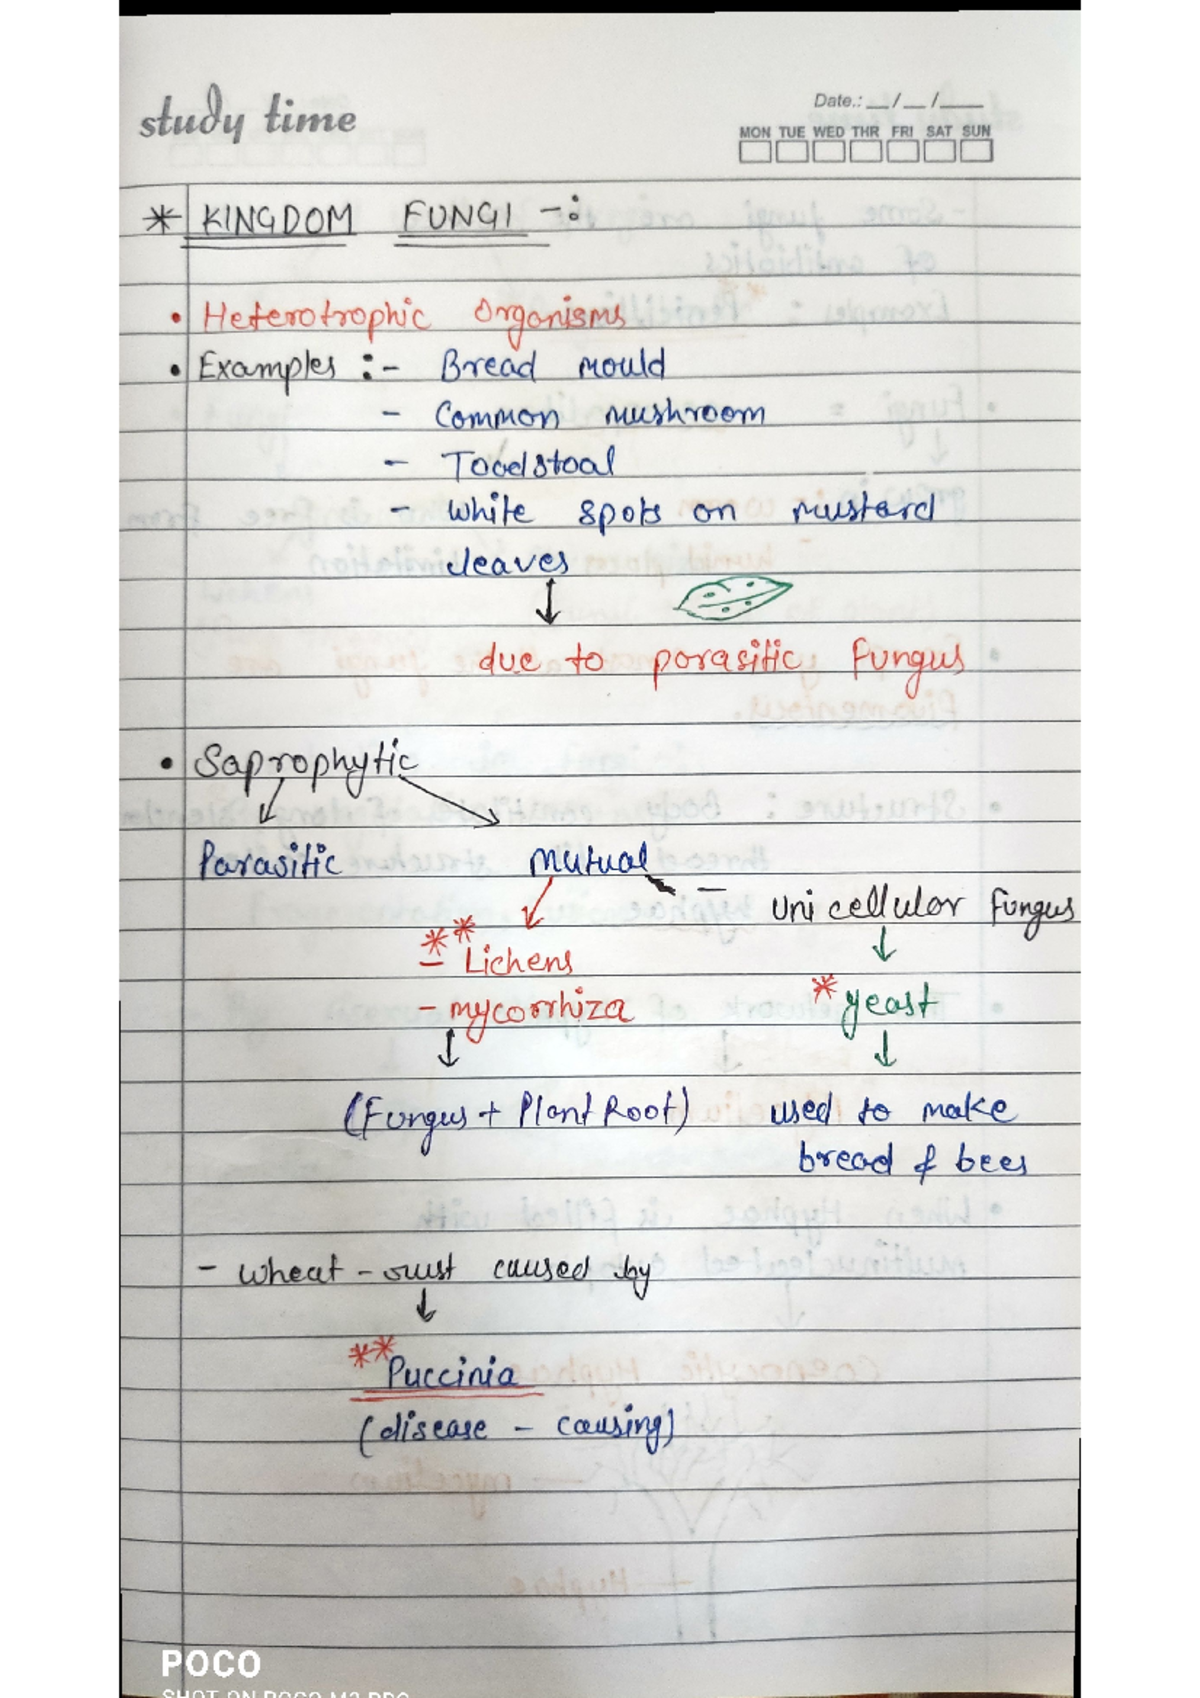 study time
Date.: __/__/____
MON TUE WED THR FRI SAT SUN
* KINGDOM FUNGI -:
• Heterotrophic Organisms
• Examples :- Bread mould
- Common mushroom
- Toodstoal
- White spots on mustard
leaves
↓
due to porasitic fungus
• Saprophytic
Parasitic mutual
- Uni cellular fungus
↓
** - Lichens
* yeast
- mycorrhiza
↓ ↓
(Fungus + Plant Root) used to make
bread & bees
- Wheat - rust caused by
↓
** Puccinia
(disease - causing)
POCO
SHOT ON POCO M2 PRO